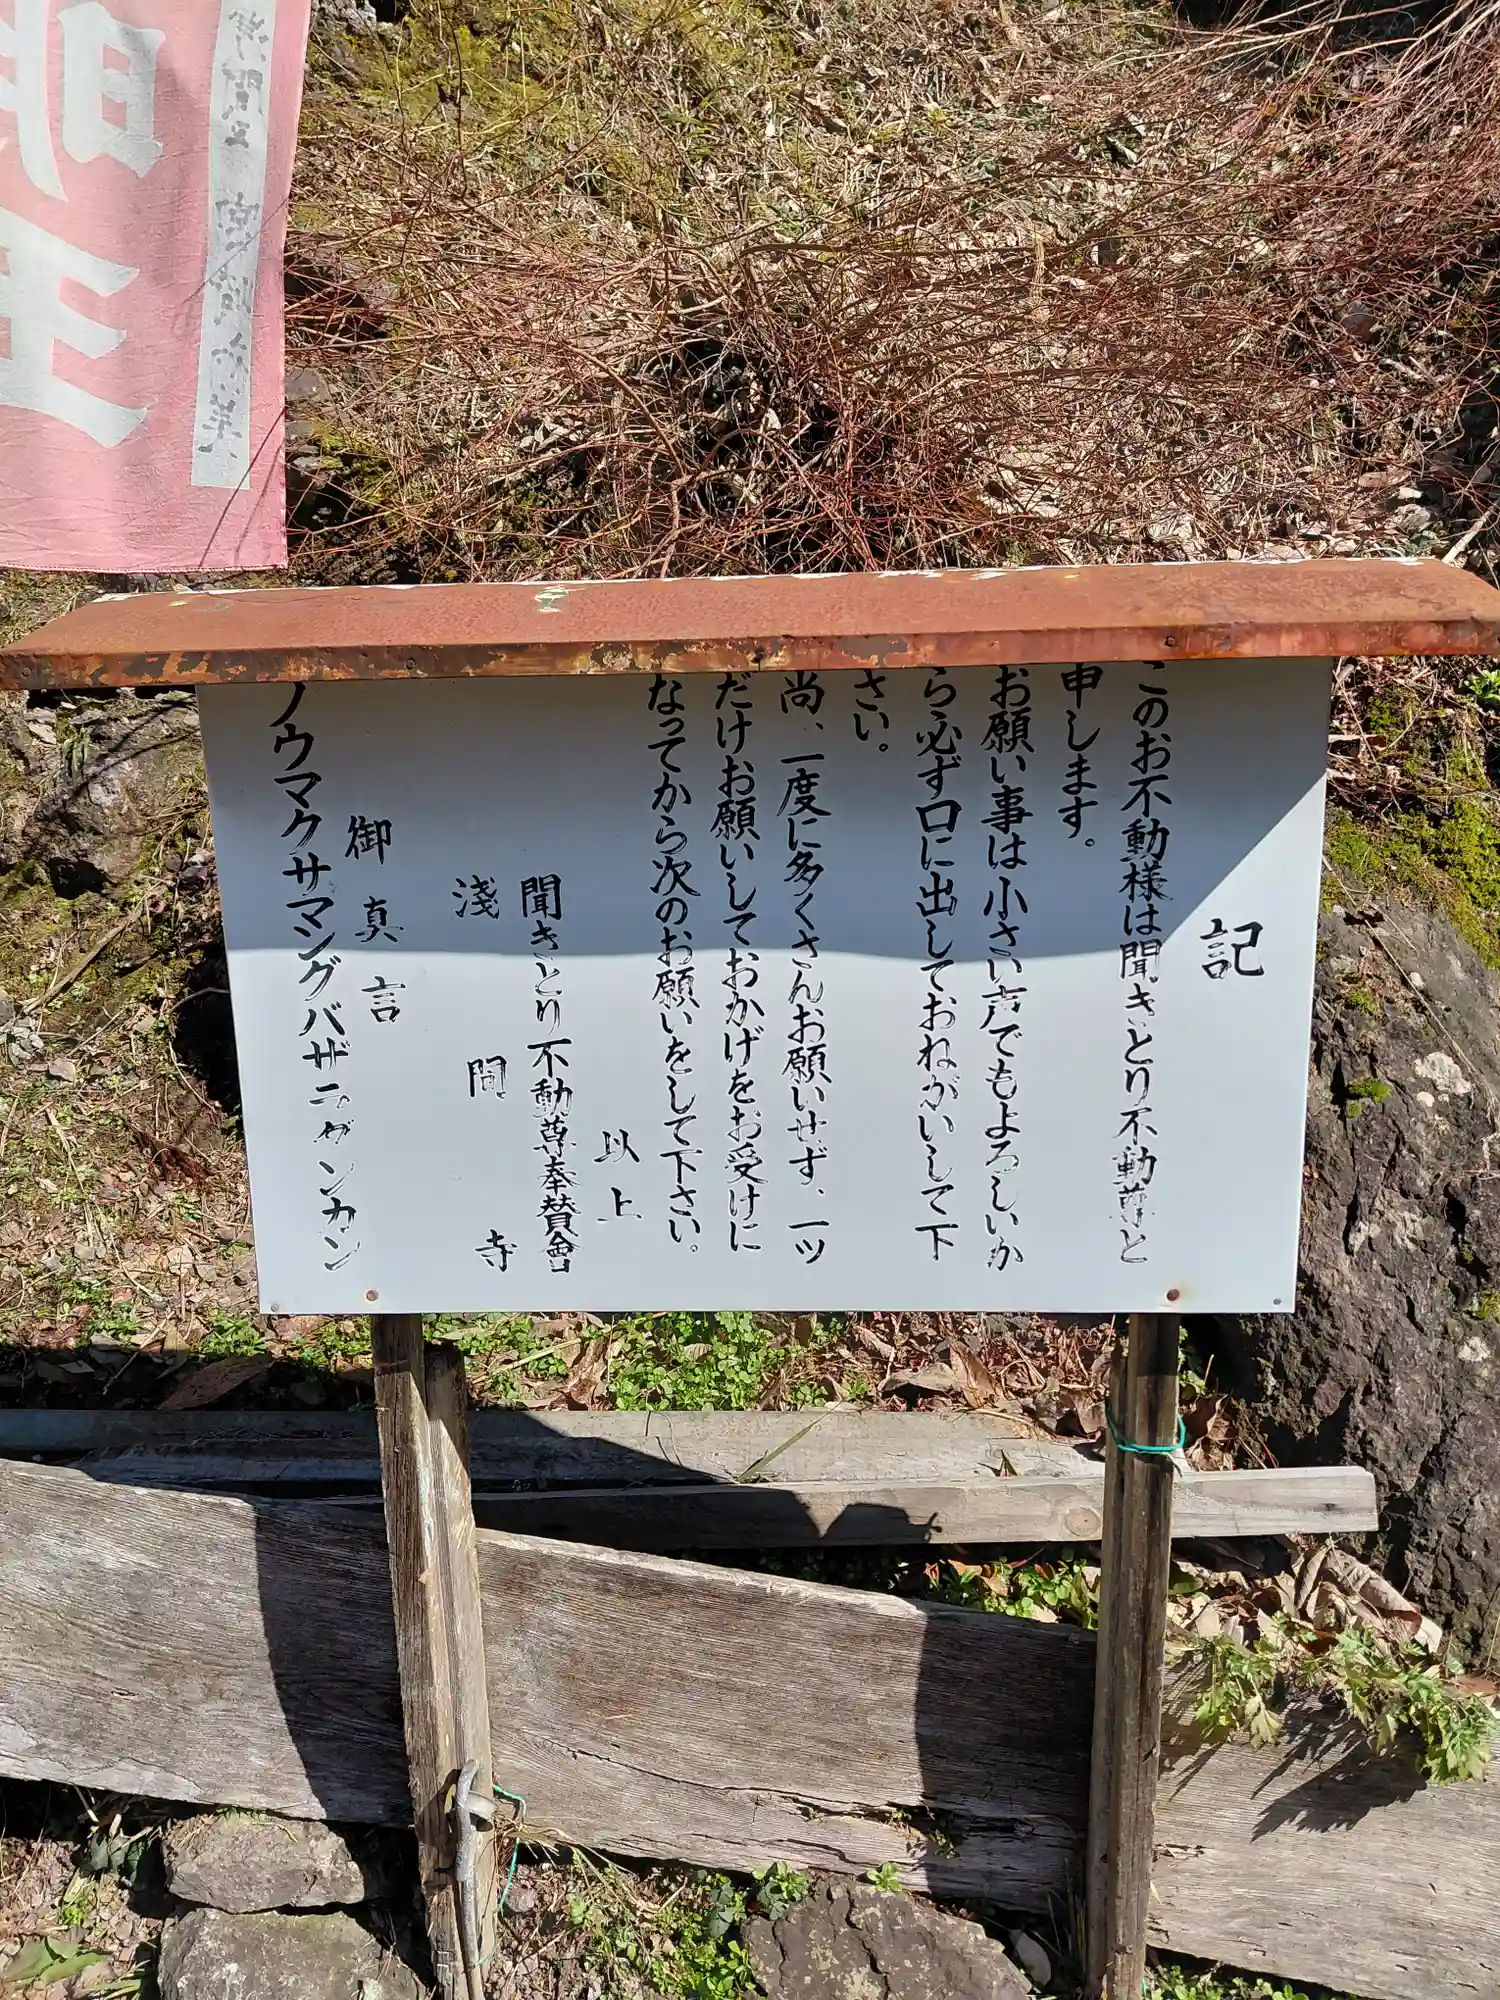 記
このお不動様は聞きとり不動尊と
申します。
お願い事は小さい声でもよろしいか
ら必ず口に出しておねがいして下
さい。
尚、一度に多くさんお願いせず、一ッ
だけお願いしておかげをお受けに
なってから次のお願いをして下さい。
以上
聞きとり不動尊奉賛會
淺間寺
御真言
ノウマクサマングバザニダンカン
明
王